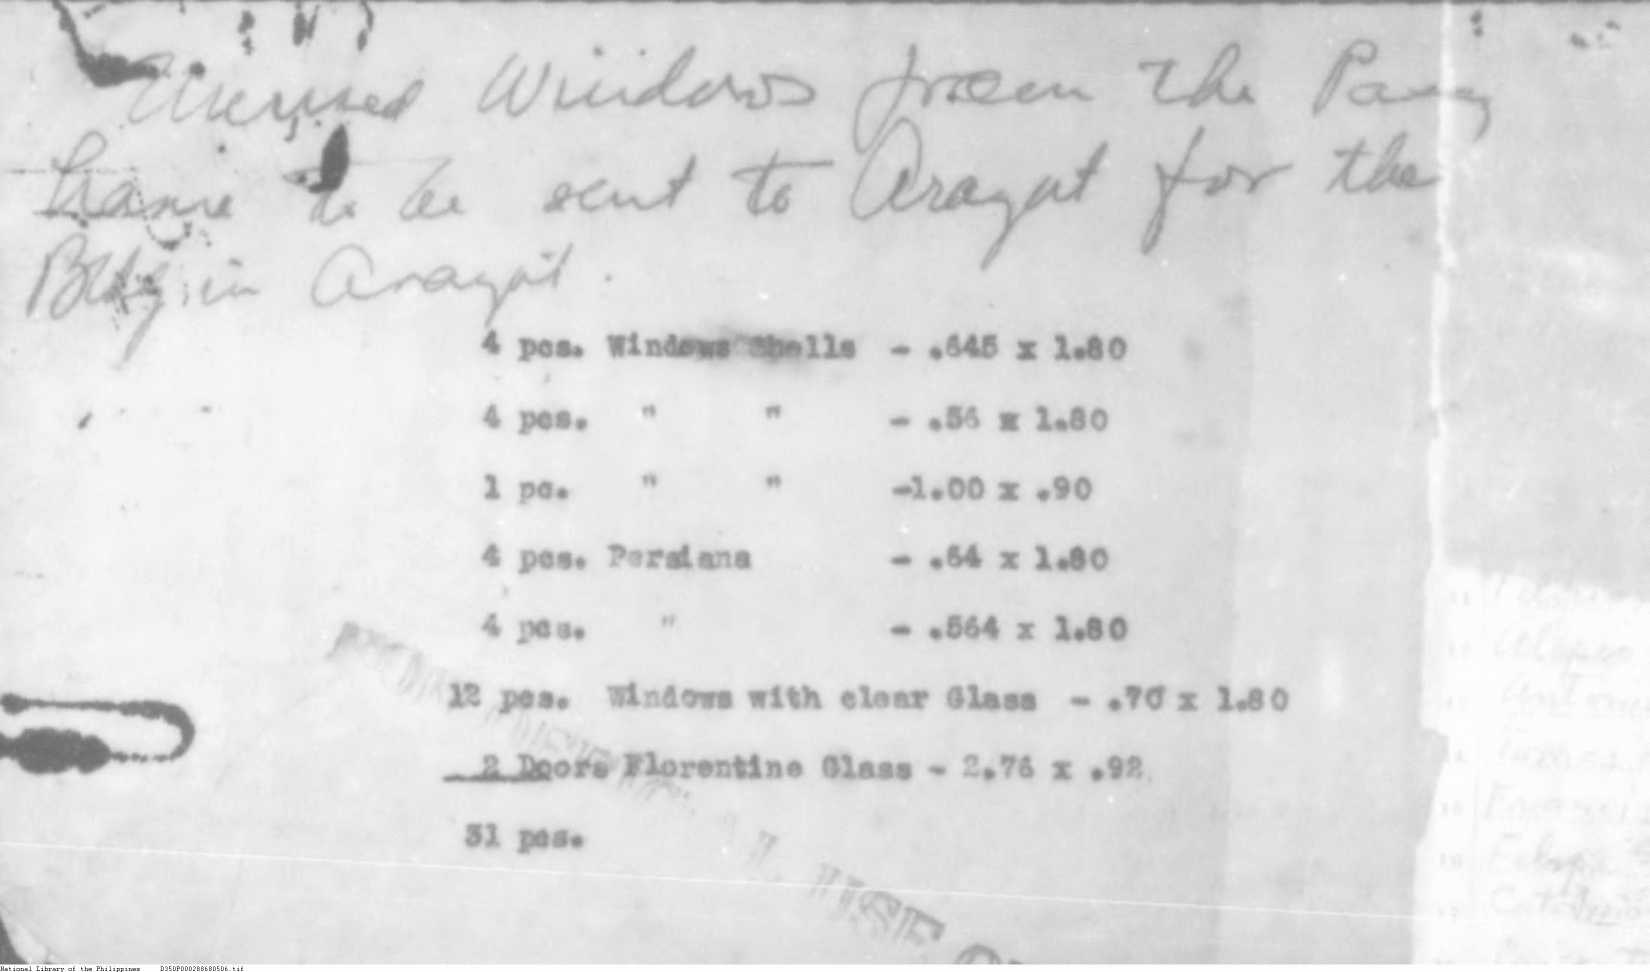 Unused Windows from the Pasay
house to be sent to Arayat for the
Bldg. in Arayat.
4 pcs. Windows Shells - .645 x 1.80
4 pcs. " " - .56 x 1.80
1 pc. " " -1.00 x .90
4 pcs. Persiana - .64 x 1.80
4 pcs. " - .564 x 1.80
12 pcs. Windows with clear Glass - .70 x 1.80
2 Doors Florentine Glass - 2.76 x .92
31 pcs.
USE
National Library of the Philippines D350P000288680506.tif